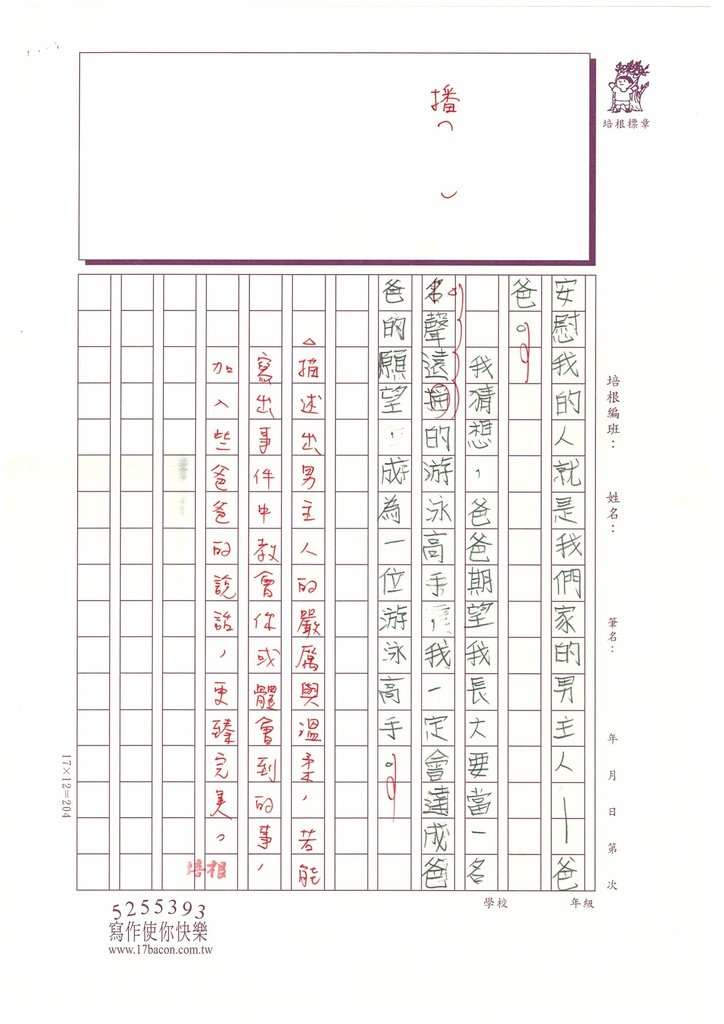 培根標章
播（ ）
培根編班： 姓名： 筆名： 年 月 日 第 次
學校 年級
安慰我的人就是我們家的男主人—爸
爸。
我猜想，爸爸期望我長大要當一名
聲遠的游泳高手，我一定會達成爸
爸的願望，成為一位游泳高手。
△描述出男主人的嚴厲與溫柔，若能
寫出事件中教會你或體會到的事，
加入些爸爸的說話，更臻完美。
培根
17×12=204
5255393
寫作使你快樂
www.17bacon.com.tw